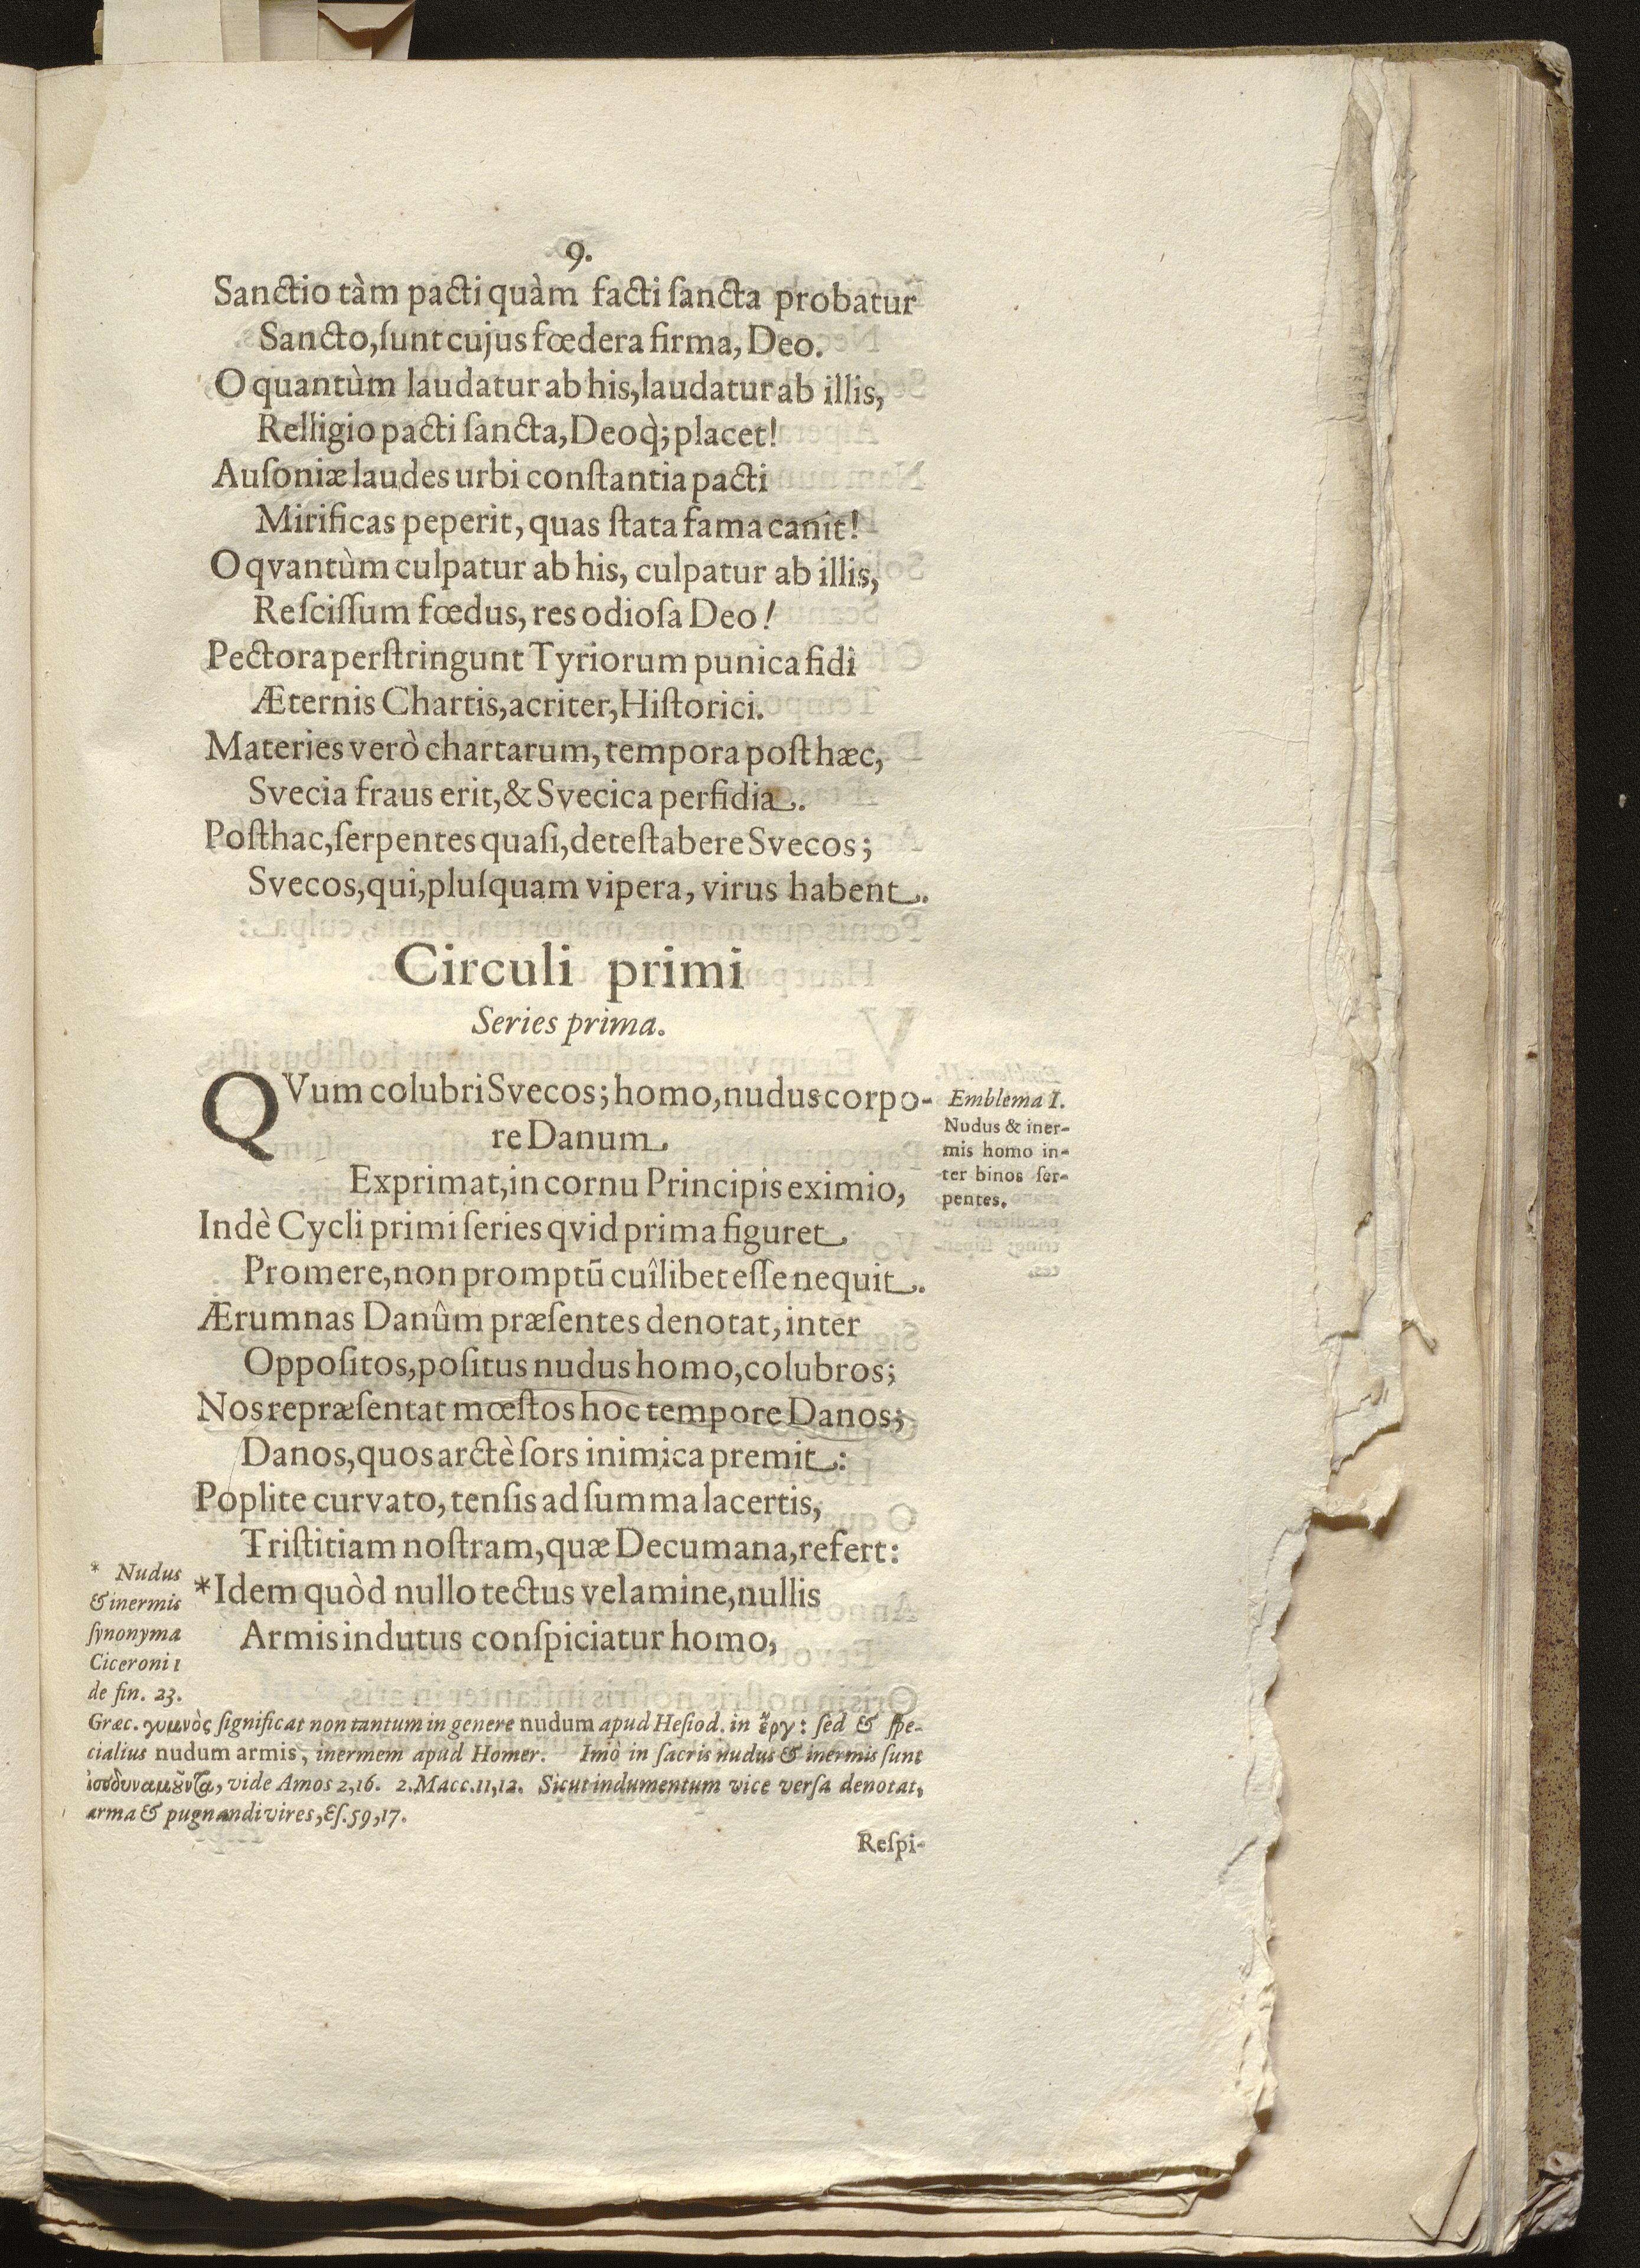 9.
Sanctio tàm pacti quàm facti ſancta probatur
Sancto, ſunt cujus fœdera firma, Deo.
O quantùm laudatur ab his, laudatur ab illis,
Relligio pacti ſancta, Deoq́; placet!
Auſoniæ laudes urbi conſtantia pacti
Mirificas peperit, quas ſtata fama canit!
O qvantùm culpatur ab his, culpatur ab illis,
Reſciſſum fœdus, res odioſa Deo!
Pectora perſtringunt Tyriorum punica fidi
Æternis Chartis, acriter, Hiſtorici.
Materies verò chartarum, tempora poſt hæc,
Svecia fraus erit, & Svecica perfidia.
Poſthac, ſerpentes quaſi, deteſtabere Svecos;
Svecos, qui, pluſquam vipera, virus habent.
Circuli primi
Series prima.
QVum colubri Svecos; homo, nudus corpo-
re Danum
Exprimat, in cornu Principis eximio,
Indè Cycli primi ſeries qvid prima figuret
Promere, non promptū cuîlibet eſſe nequit.
Ærumnas Danûm præſentes denotat, inter
Oppoſitos, poſitus nudus homo, colubros;
Nos repræſentat mœſtos hoc tempore Danos;
Danos, quos arctè ſors inimica premit:
Poplite curvato, tenſis ad ſumma lacertis,
Triſtitiam noſtram, quæ Decumana, refert:
*Idem quòd nullo tectus velamine, nullis
Armis indutus conſpiciatur homo,
Emblema I.
Nudus & iner-
mis homo in-
ter binos ſer-
pentes.
* Nudus
& inermis
ſynonyma
Ciceroni 1
de fin. 23.
Græc. γυμνὸς ſignificat non tantum in genere nudum apud Heſiod. in ἔργ: ſed & ſpe-
cialius nudum armis, inermem apud Homer. Imò in ſacris nudus & inermis ſunt
ἰσοδυναμοῦντα, vide Amos 2,16. 2. Macc. 11,12. Sicut indumentum vice verſa denotat,
arma & pugnandi vires, Eſ. 59,17.
Reſpi-